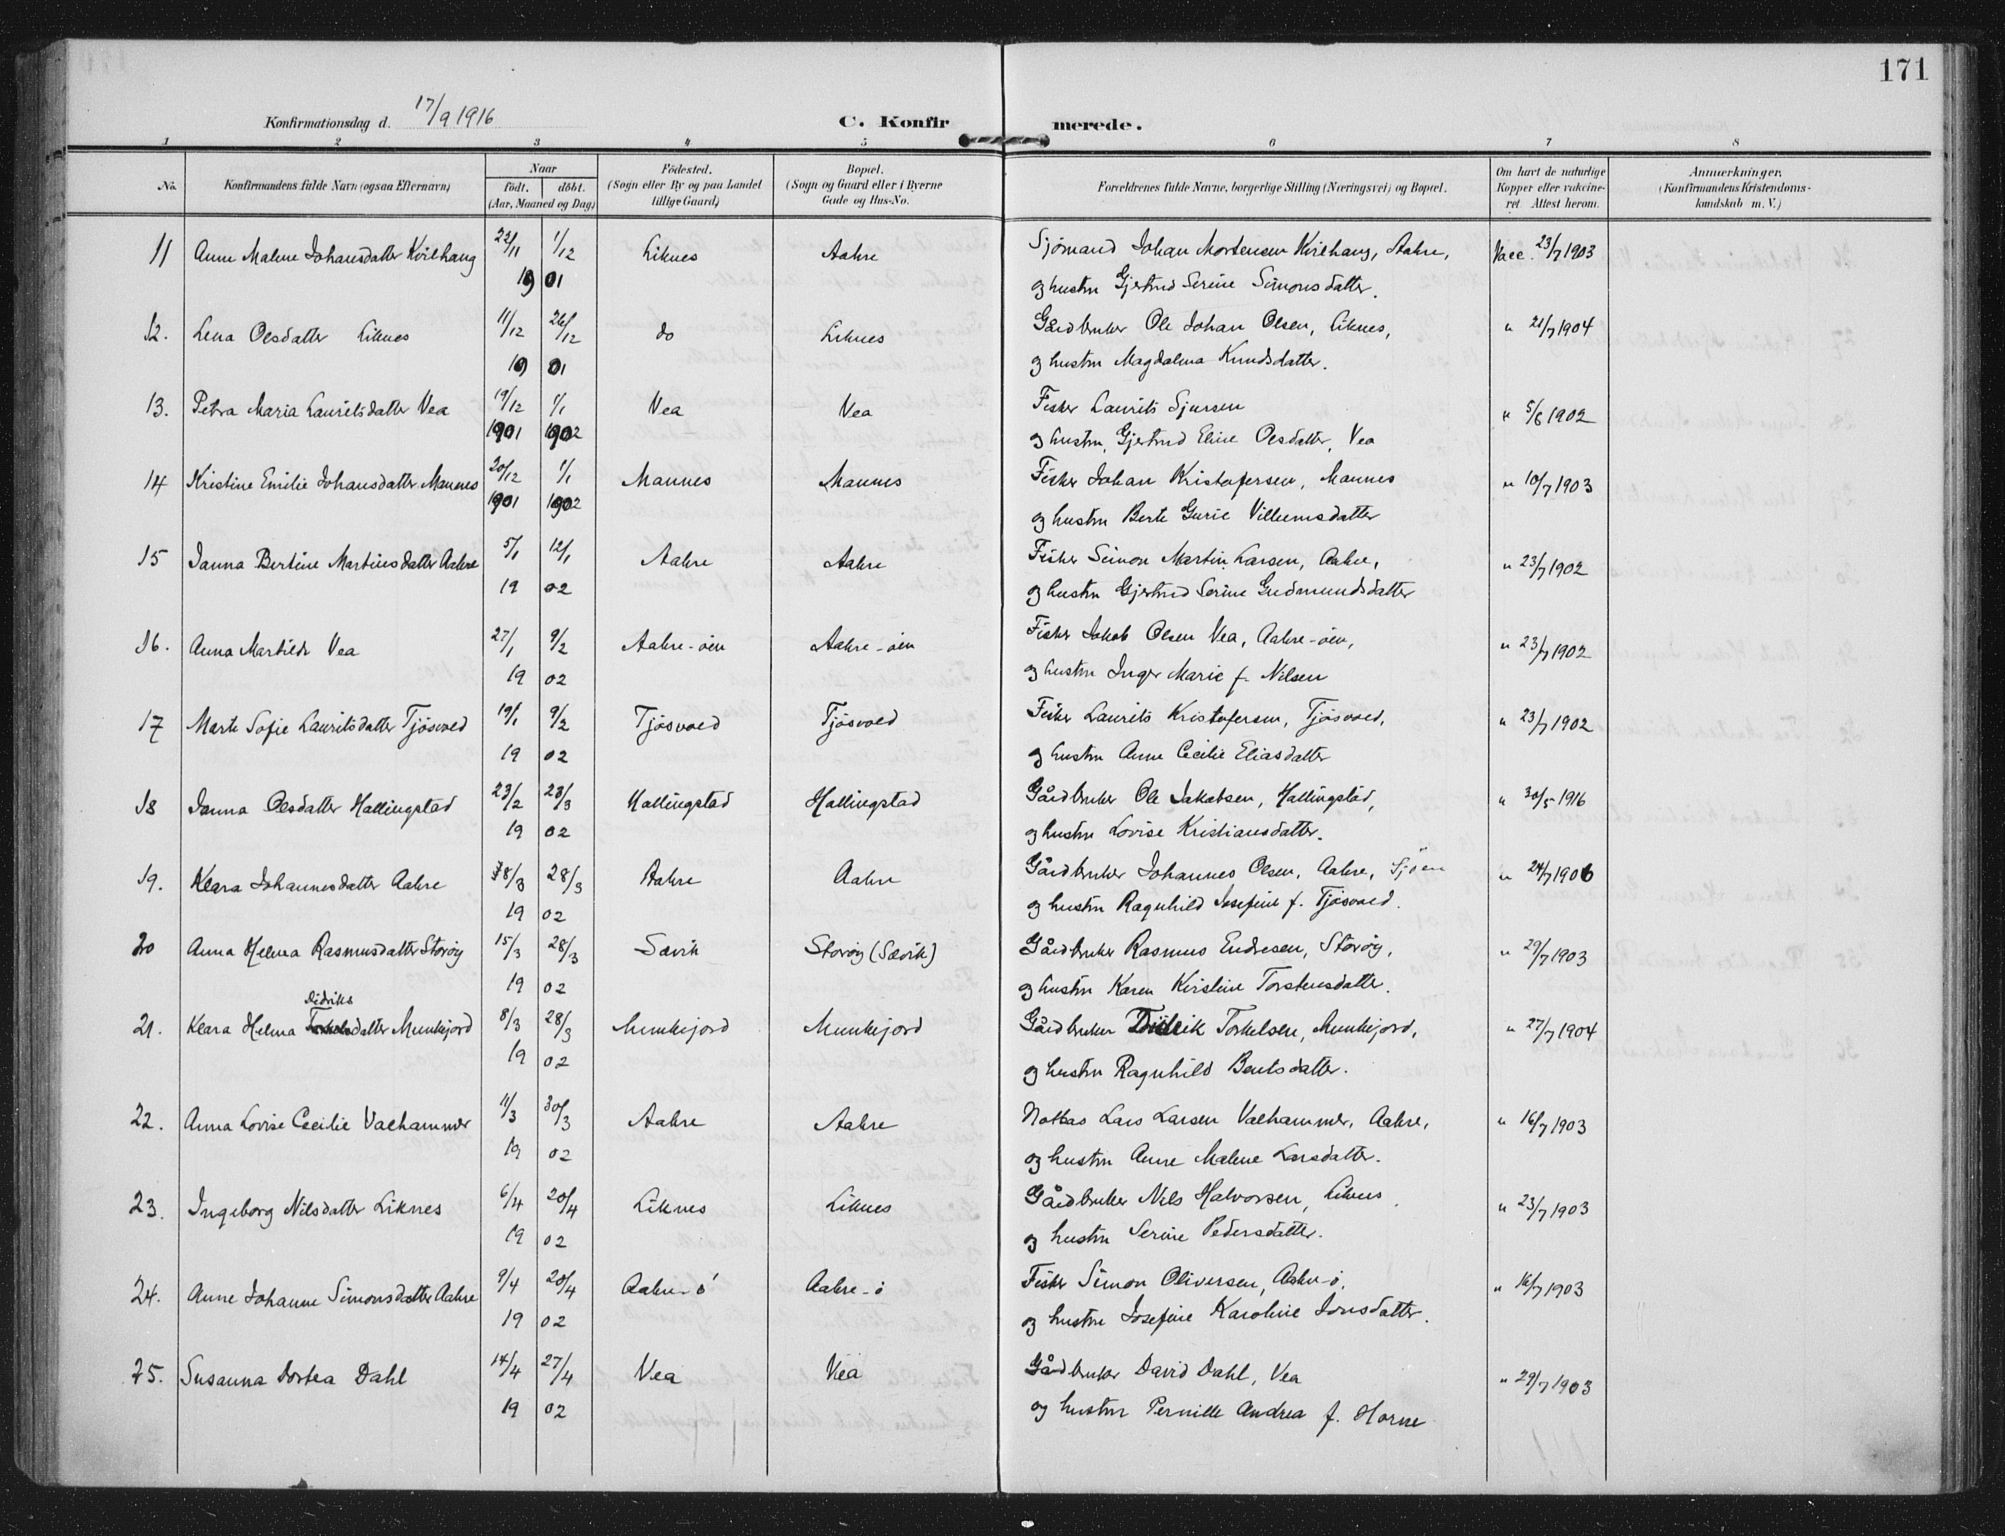 171
Konfirmationsdag d. 17/9 1916
C. Konfirmerede.
1 2 3 4 5 6 7 8
No. Konfirmandens fulde Navn (ogsaa Efternavn) Naar födt. döbt. (Aar, Maaned og Dag) Födested. (Sogn eller By og paa Landet tillige Gaard) Bopæl. (Sogn og Gaard eller i Byerne Gade og Hus-No. Forældrenes fulde Navne, borgerlige Stilling (Næringsvei) og Bopæl. Om havt de naturlige Kopper eller vaccineret. Attest herom. Anmærkninger. (Konfirmandens Kristendomskundskab m. V.)
11 Anne Malene Johansdatter Kvilhaug 22/11 1/12 Liknes Aakre Sjömand Johan Mortensen Kvilhaug, Aakre, Vacc. 23/7 1903
19 01 og hustru Gjertrud Serine Simonsdatter.
12. Lena Olsdatter Liknes 11/12 26/12 do Liknes Gårdbruker Ole Johan Olsen, Liknes, " 21/7 1904
19 01 og hustru Magdalena Knudsdatter.
13. Petra Maria Lauritsdatter Vea 19/12 1/1 Vea Vea Fisker Laurits Sjursen " 5/6 1902
1901 1902 og hustru Gjertrud Eline Olsdatter, Vea
14 Kristine Emilie Johansdatter Mannes 20/12 1/1 Mannes Mannes Fisker Johan Kristofersen, Mannes " 10/7 1903
1901 1902 og hustru Berte Gurie Villumsdatter
15 Janna Bertine Martinsdatter Aakre 5/1 12/1 Aakre Aakre Fisker Simon Martin Larsen, Aakre, " 23/7 1902
19 02 og hustru Gjertrud Serine Gudmundsdatter
16. Anna Martilde Vea 27/1 9/2 Aakre-öen Aakre-öen Fisker Jakob Olsen Vea, Aakre-öen, " 23/7 1902
19 02 og hustru Inger Marie f. Nilsen
17 Marte Sofie Lauritsdatter Tjösvold 19/1 9/2 Tjösvold Tjösvold Fisker Laurits Kristofersen, Tjösvold, " 23/7 1902
19 02 og hustru Anne Cecilie Eliasdatter
18 Janna Olsdatter Hallingstad 23/2 23/3 Hallingstad Hallingstad Gårdbruker Ole Jakobsen, Hallingstad, " 30/5 1916
19 02 og hustru Lovise Kristiansdatter.
19. Klara Johannesdatter Aakre 8/3 28/3 Aakre Aakre Gårdbruker Johannes Olsen, Aakre, Sjöen " 24/7 1906
19 02 og hustru Ragnhild Josefine f. Tjösvold.
20 Anna Helma Rasmusdatter Storöy 15/3 28/3 Sævik Storöy (Sævik) Gårdbruker Rasmus Endresen, Storöy, " 29/7 1903
19 02 og hustru Karen Kirstine Torstensdatter.
Didriks
21. Klara Helma datter Munkejord 8/3 28/3 Munkejord Munkejord Gårdbruker Didrik Torkelsen, Munkejord, " 27/7 1904
19 02 og hustru Ragnhild Bentsdatter.
22. Anna Lovise Cecilie Valhammer 11/3 30/3 Aakre Aakre Notbas Lars Larsen Valhammer, Aakre, " 16/7 1903
19 02 og hustru Anne Malene Larsdatter.
23. Ingeborg Nilsdatter Liknes 6/4 20/4 Liknes Liknes Gårdbruker Nils Halvorsen, Liknes " 23/7 1903
19 02 og hustru Serine Pedersdatter.
24. Anne Johanne Simonsdatter Aakre 9/4 20/4 Aakre-ö Aakre-ö Fisker Simon Oliversen, Aakre-ö, " 16/7 1903
19 02 og hustru Josefine Karoline Jonsdatter.
25. Susanna Dortea Dahl 14/4 27/4 Vea Vea Gårdbruker David Dahl, Vea " 29/7 1903
19 02 og hustru Pernille Andrea f. Horne